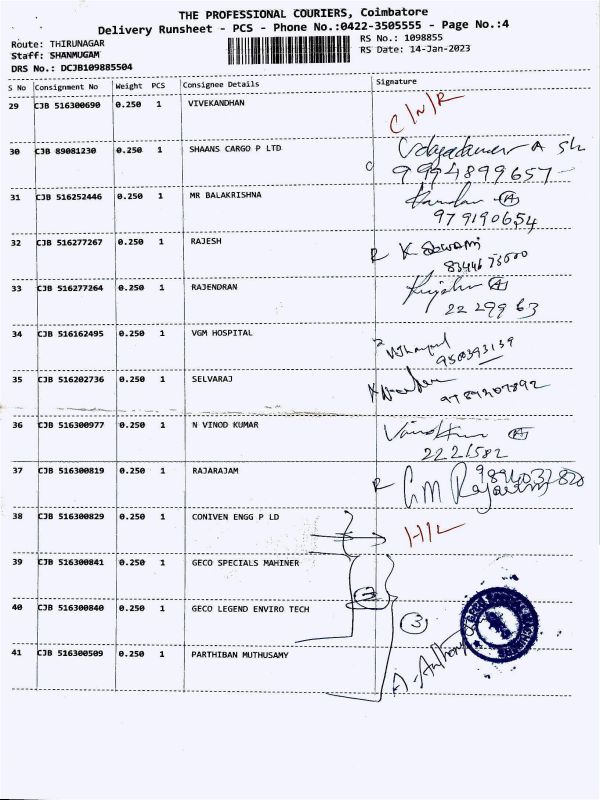 THE PROFESSIONAL COURIERS, Coimbatore
Delivery Runsheet - PCS - Phone No.:0422-3505555 - Page No.:4
Route: THIRUNAGAR
RS No.: 1098855
Staff: SHANMUGAM
RS Date: 14-Jan-2023
DRS No.: DCJB109885504
S No Consignment No Weight PCS Consignee Details Signature
29 CJB 516300690 0.250 1 VIVEKANDHAN C/N/R
30 CJB 89081230 0.250 1 SHAANS CARGO P LTD
9994899657
31 CJB 516252446 0.250 1 MR BALAKRISHNA
979190654
32 CJB 516277267 0.250 1 RAJESH
33 CJB 516277264 0.250 1 RAJENDRAN
22 29963
34 CJB 516162495 0.250 1 VGM HOSPITAL
35 CJB 516202736 0.250 1 SELVARAJ
36 CJB 516300977 0.250 1 N VINOD KUMAR
2221582
37 CJB 516300819 0.250 1 RAJARAJAM
38 CJB 516300829 0.250 1 CONIVEN ENGG P LD
39 CJB 516300841 0.250 1 GECO SPECIALS MAHINER
40 CJB 516300840 0.250 1 GECO LEGEND ENVIRO TECH
3
41 CJB 516300509 0.250 1 PARTHIBAN MUTHUSAMY